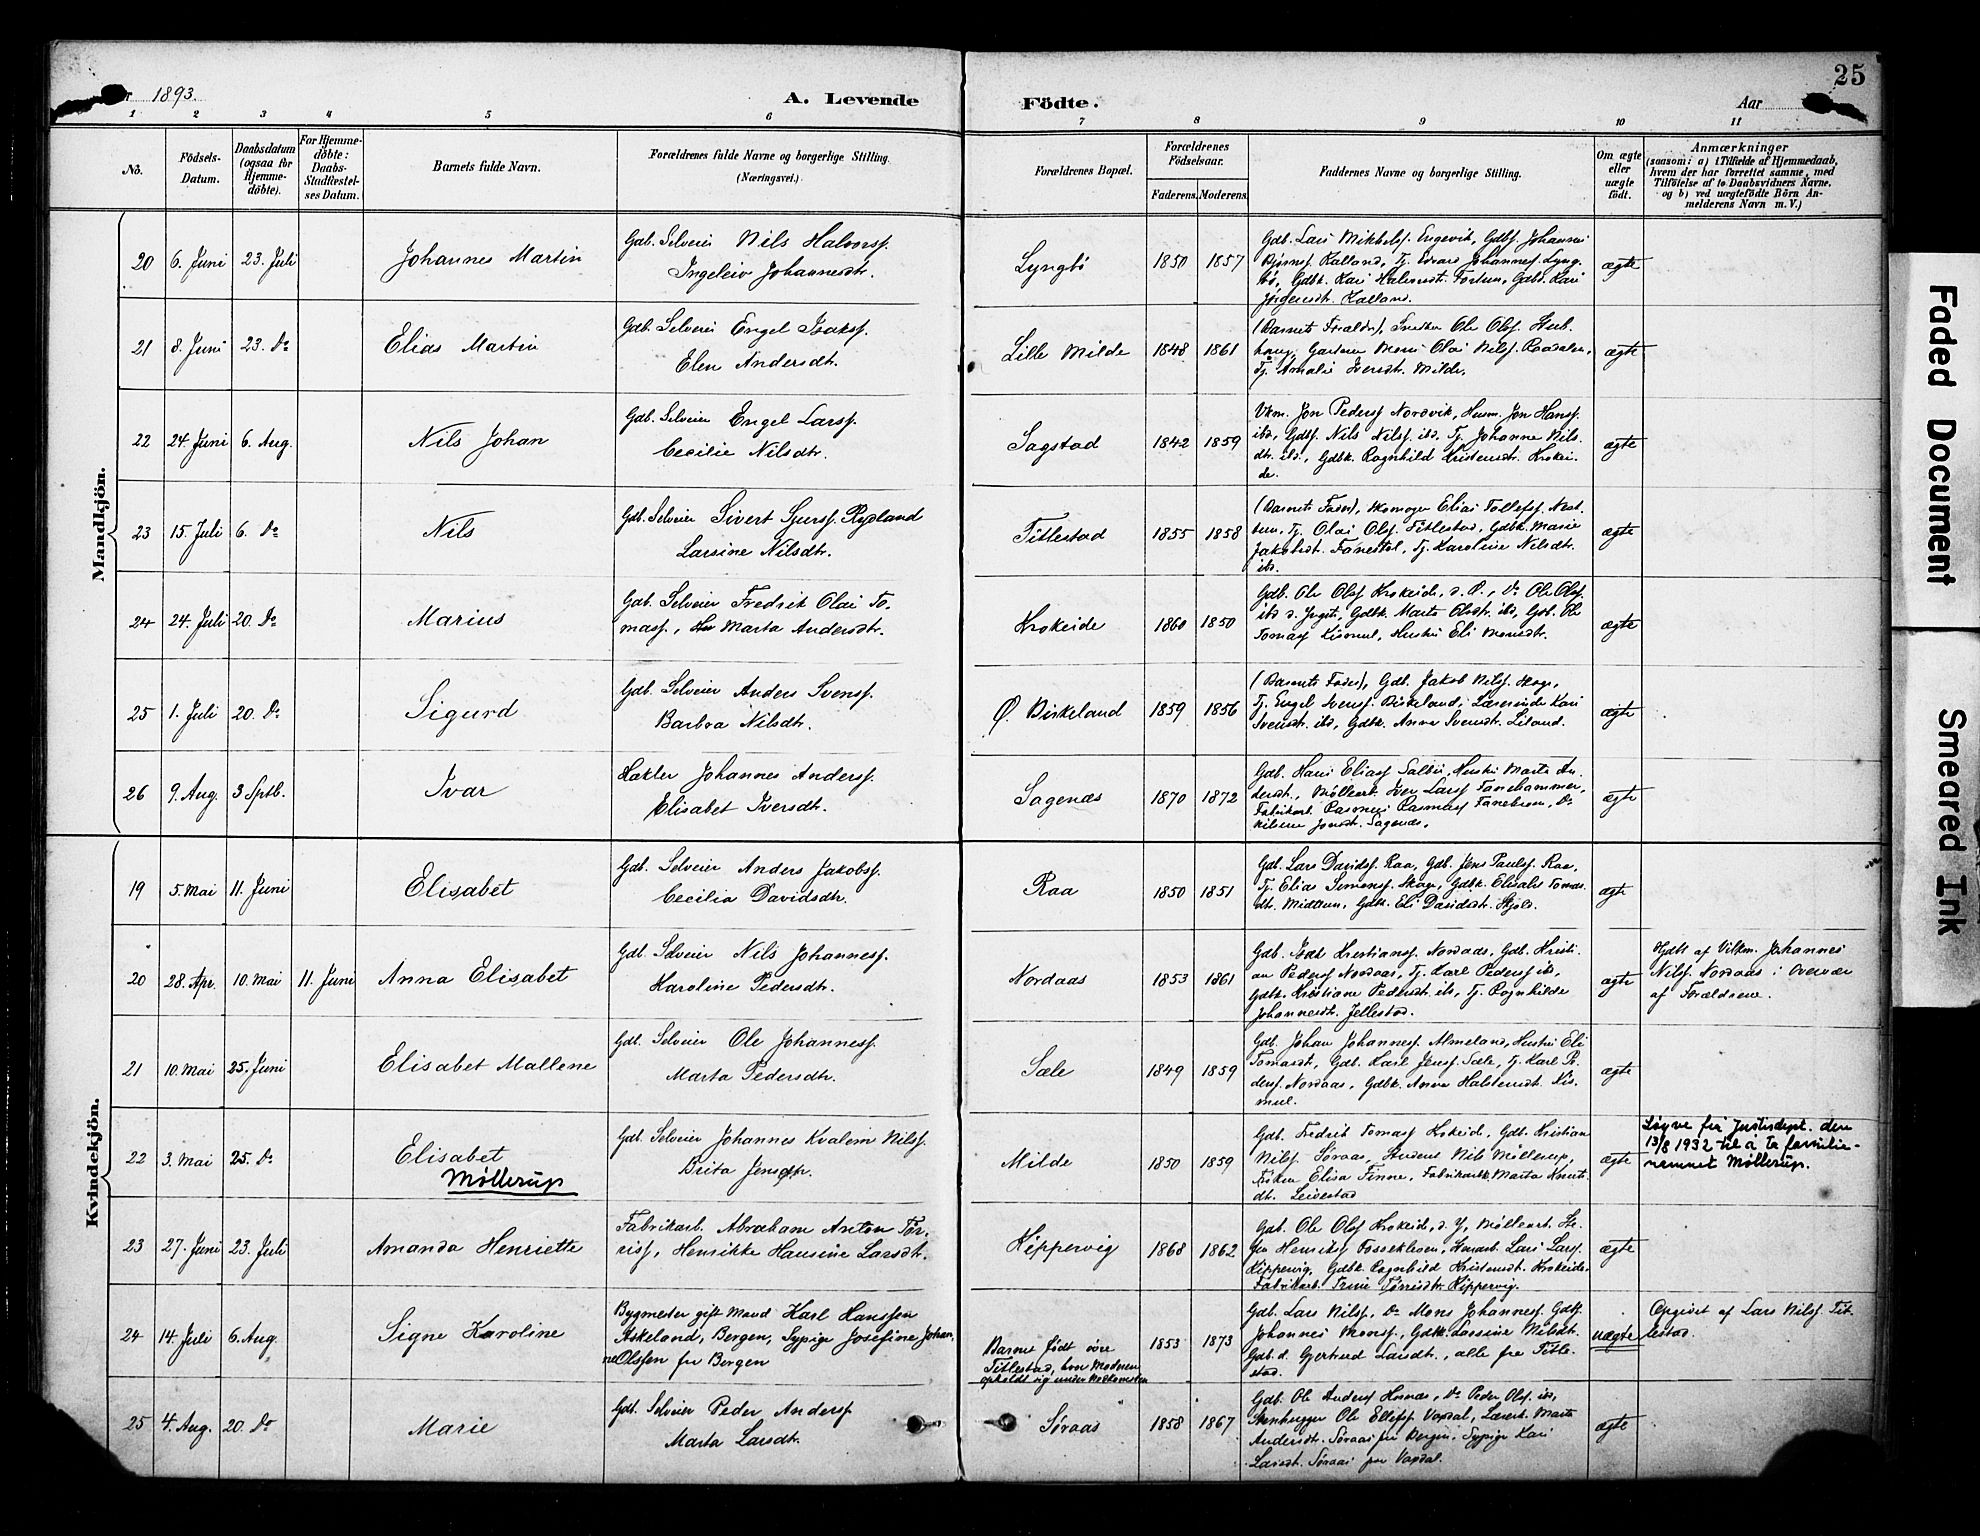 1893.
A. Levende
Födte.
Aar
25
1 2 3 4 5 6 7 8 9 10 11
No.
Födsels-
Datum.
Daabsdatum
(ogsaa för
Hjemme-
döbte).
For Hjemme-
døbte:
Daabs-
Stadfestel-
ses Datum.
Barnets fulde Navn.
Forældrenes fulde Navne og borgerlige Stilling.
(Næringsvei.)
Forældrenes Bopæl.
Forældrenes
Födselsaar.
Faderens. Moderens.
Faddernes Navne og borgerlige Stilling.
Om ægte
eller
uægte
födt.
Anmærkninger
(saasom: a) i Tilfælde af Hjemmedaab,
hvem der har forrettet samme, med
Tilföielse af to Daabsvidners Navne,
og b) ved uægtefödte Börn An-
melderens Navn m. V.)
Mandkjön.
20 6. Juni 23. Juli Johannes Martin
Gdb. Selveier Nils Halvorsf.
Ingeleiv Johannesdtr.
Lyngbö 1850 1857
Gdb. Lars Mikkelsf. Engevik, Gdbf. Johannes
Bjørnsf. Kalland, Tj. Edvard Johannesf. Lyng-
bö, Gdbk. Kari Halvorsdt. Fortun, Gdbd. Kari
Jørgensdt. Kalland.
ægte
21 8. Juni 23. Do Elias Martin
Gdb. Selveier Engel Isaksf.
Elen Andersdtr.
Lille Milde 1848 1861
(Barnets Forældre), Snedker Ole Olsf.
Gartner Mons Olai Nilsf. Raadalen,
Tj. Amalie Iversdt. Milde.
ægte
22 24. Juni 6. Aug. Nils Johan
Gdb. Selveier Engel Larsf.
Cecilie Nilsdtr.
Sagstad 1842 1859
Vkm. Jon Pedersf Nordvik, Husm. Jon Hansf.
ibd, Gdbf. Nils Nilsf. ibd. Tj. Johanne Nils-
dtr. ibd., Gdbk. Ragnhild Kristensdt. Krokei-
de.
ægte
23 15. Juli 6. Do Nils
Gdb. Selveier Sivert Sjursf. Rydland
Larsine Nilsdtr.
Titlestad 1855 1858
(Barnets Fader), Skomager Elias Tollefsf. Nest-
tun, Tj. Olai Olsf. Titlestad, Gdbk. Marie
Jakobsdt. Fanestøl, Tj. Karoline Nilsdt.
ibd.
ægte
24 24. Juli 20. Do Marius
Gdb. Selveier Fredrik Olai To-
masf., Marta Andersdtr.
Krokeide 1860 1850
Gdb. Ole Olsf Krokeide, d. Ø., Do Ole Olsf.
ibd d. Yngste, Gdbk. Marta Olsdtr. ibd, Gdb. Ole
Tomasf Kismul, Hustru Eli Monsdtr.
ægte
25 1. Juli 20. Do Sigurd
Gdb. Selveier Anders Svensf.
Barbra Nilsdtr.
Ø. Birkeland 1859 1856
(Barnets Fader), Gdb. Jakob Nilsf. Skage,
Tj. Engel Svensf. Birkeland, Lærerinde Kari
Svensdt. ibd, Gdbk. Anna Svensdt. Liland.
ægte
26 9. Aug. 3 Sptb. Ivar
Hakler Johannes Andersf.
Elisabet Iversdtr.
Sagenæs 1870 1872
Gdb. Hans Eliasf Salbu, Hustru Marta An-
dersdt., Møllearb. Iver Larsf Fanehammer,
Fabrikarb. Rasmus Rasmusf Fanebrem, Do
Nilsine Jonsdt. Sagenæs.
ægte
Kvindekjön.
19 5. Mai 11. Juni Elisabet
Gdb. Selveier Anders Jakobsf.
Cecilia Davidsdtr.
Raa 1850 1851
Gdb. Lars Davidsf. Raa, Gdb. Jens Paulsf. Raa,
Tj. Elias Simonsf. Skage, Gdbk. Elisabet Tomas-
dtr. Midttun, Gdbk. Eli Davidsdt. Skjold.
ægte
20 28. Apr. 10. Mai 11. Juni Anna Elisabet
Gdb. Selveier Nils Johannesf.
Karoline Pedersdtr.
Nordaas 1853 1861
Gdb. Kristiansf. Nordaas, Gdb. Kristi-
an Pedersf Nordaas, Tj. Karl Pedersf ibd,
Gdbk. Kristiane Pedersdt. ibd, Tj. Ragnhilde
Johannesdt. Jellestad.
ægte
Hjdbt af Vitkm. Johannes
Nilsf. Nordaas i Overvær
af Forældrene.
21 10. Mai 25. Juni Elisabet Mallene
Gdb. Selveier Ole Johannesf.
Marta Pedersdtr.
Sæle 1849 1859
Gdb. Johan Johannesf. Almeland, Hustru Eli
Tomasdt, Gdb. Karl Jensf. Sæle, Tj. Karl Pe-
dersf. Nordaas, Gdbk. Anna Halstensdt. Kis-
mul.
ægte
22 3. Mai 25. Do Elisabet
Møllerup
Gdb. Selveier Johannes Kvalem Nilsf.
Brita Jensdtr.
Milde 1850 1859
Gdb. Fredrik Tomasf Krokeide, Gdb. Kristian
Nilsf. Søraas, Student Nils Møllerup,
Frøken Elisa Finne, Fabrikarb. Marta Knuts-
dt. Leirestad
ægte
Løyve frå Justisdept. den
13/8 1932 til å ta familie-
namnet Møllerup.
23 27. Juni 23. Juli Amanda Henriette
Fabrikarb. Abraham Anton Tør-
risf, Henrikke Hansine Larsdt.
Kippervig 1868 1862
Gdb. Ole Olsf Krokeide, d. Y, Møllearb. Ste-
fen Henriksf Fossekleven, Husarb. Lars Larsf.
Kippervig, Gdbk. Ragnhild Kristensdt. Krokeide,
Fabrikarb. Trine Tørrisdtr Kippervig.
ægte
24 14. Juli 6. Aug. Signe Karoline
Bygmester gift Mand Karl Hanssen
Askeland, Bergen, Sypige Josefine Johan-
ne Olssen fra Bergen
Barnet født øvre
Titlestad, hvor Moderen
opholdt sig under Nedkomsten
1853 1873
Gdb. Lars Nilsf, Do Mons Johannesf, Gdbf.
Johannes Monsf., Gdbk. Larsine Nilsdt.
Gdb.d. Gjertrud Larsdt., alle fra Title-
stad.
uægte
Opgivet af Lars Nilsf. Tit-
lestad.
25 4. Aug. 20. Do Marie
Gdb. Selveier Peder Andersf
Marta Larsdtr.
Søraas 1858 1867
Gdb. Ole Andersf Hornæs, Do Peder Olsf. ibd,
Stenhugger Ole Ellefsf Vaxdal, Marta
Andersdt. Søraas fra Bergen, Sypige Kari
Larsdt. Søraas fra Vaxdal.
ægte
Faded Document
Smeared Ink